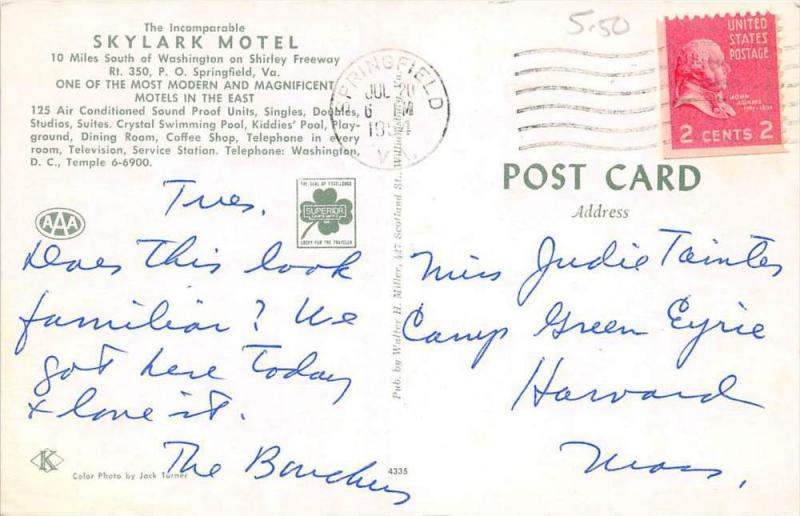 The Incomparable
SKYLARK MOTEL
10 Miles South of Washington on Shirley Freeway
Rt. 350, P. O. Springfield, Va.
ONE OF THE MOST MODERN AND MAGNIFICENT
MOTELS IN THE EAST
125 Air Conditioned Sound Proof Units, Singles, Doubles,
Studios, Suites. Crystal Swimming Pool, Kiddies' Pool, Play-
ground, Dining Room, Coffee Shop, Telephone in every
room, Television, Service Station. Telephone: Washington,
D. C., Temple 6-6900.
AAA
THE SEAL OF EXCELLENCE
SUPERIOR
LUCKY FOR THE TRAVELER
Tues.
Does this look
familiar? We
got here today
& love it.
The
K
Color Photo by Jack Turner
4335
Pub. by Walter H. Miller, 427 Scotland St., Williamsburg, Va.
SPRINGFIELD
JUL 20
6 M
VA.
5.50
UNITED
STATES
POSTAGE
JOHN
ADAMS
2 CENTS 2
POST CARD
Address
Miss Judie Tainter
Camp Green Eyrie
Harvard
Mass.